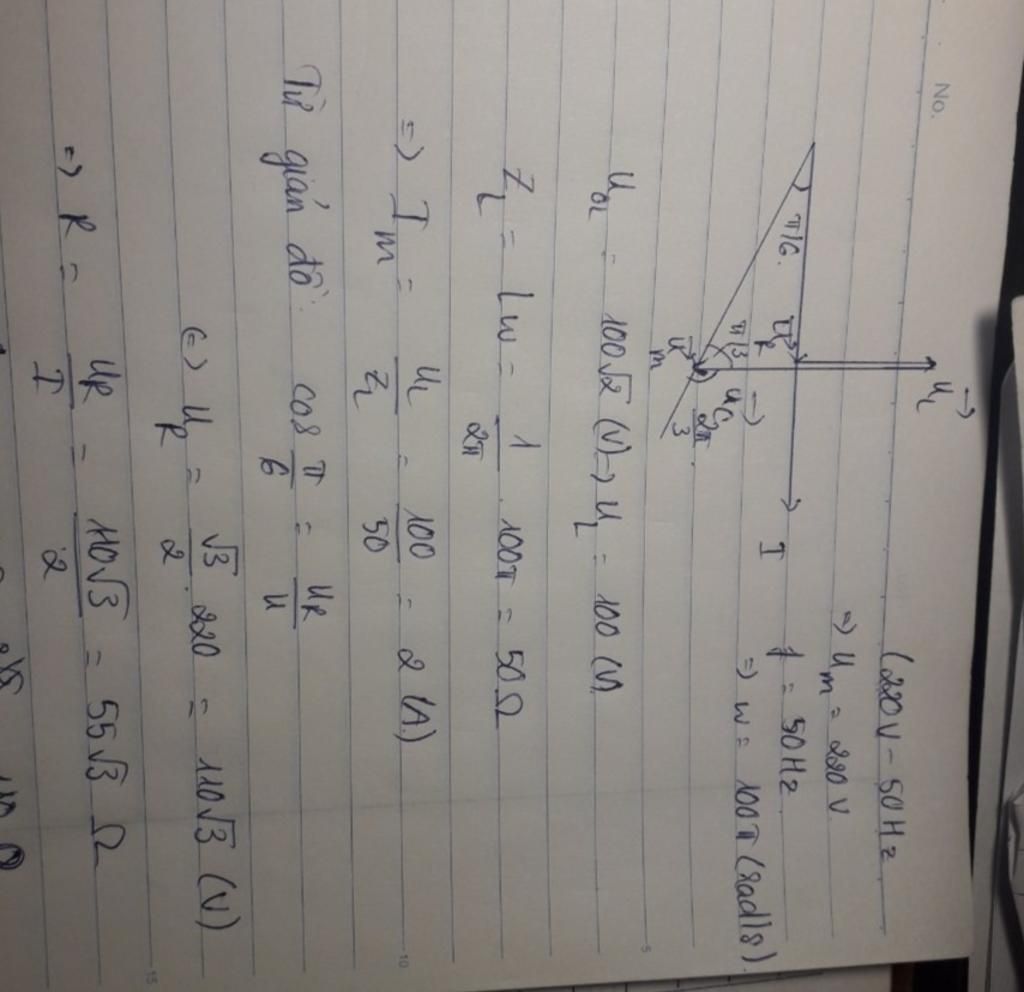 No.
(220V - 50Hz
=> U_m = 220V
f = 50Hz
=> w = 100π (rad/s).
U_L
π/6.
U_R
I
π/3
U_C
2π/3
U_m
U_0L = 100√2 (V) -> U_L = 100 (V)
5
Z_L = Lw = 1/2π . 100π = 50Ω
=> I_m = U_L/Z_L = 100/50 = 2 (A)
10
Từ giản đồ: cos π/6 = U_R/U
(=) U_R = √3/2 . 220 = 110√3 (V)
15
=> R = U_R/I = 110√3/2 = 55√3 Ω